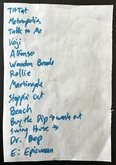 TitTat
Metropolis
Talk to Me
Alfonso
Wooden Beads
Rollie
Martingale
Steppin' Out
Beach
Buy the Dip → wash out
Swing House →
Dr. Bop
E: Epicurean